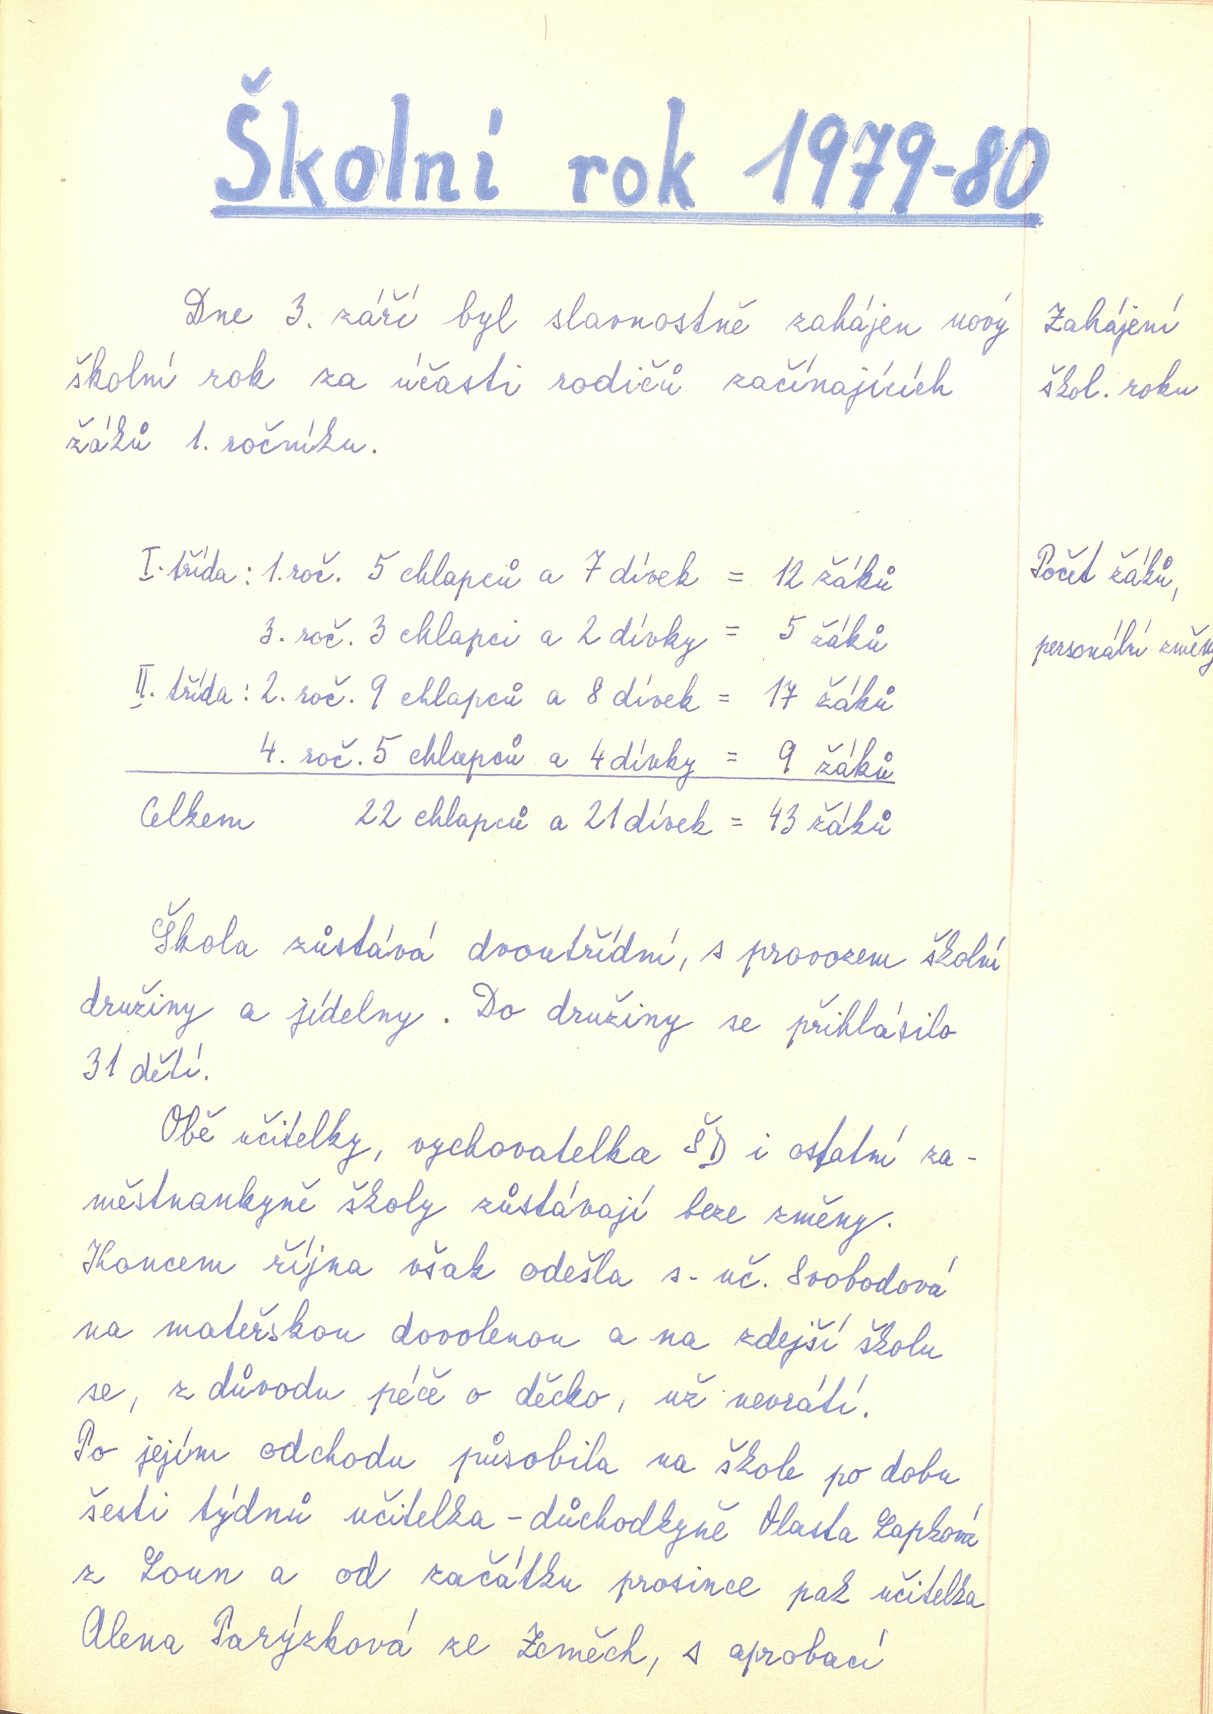 Školní rok 1979-80
Dne 3. září byl slavnostně zahájen nový
školní rok za účasti rodičů začínajících
žáků 1. ročníku.
Zahájení
škol. roku
I. třída: 1. roč. 5 chlapců a 7 dívek = 12 žáků
3. roč. 3 chlapci a 2 dívky = 5 žáků
II. třída: 2. roč. 9 chlapců a 8 dívek = 17 žáků
4. roč. 5 chlapců a 4 dívky = 9 žáků
Celkem 22 chlapců a 21 dívek = 43 žáků
Počet žáků,
personální změny
Škola zůstává dvoutřídní, s provozem školní
družiny a jídelny. Do družiny se přihlásilo
31 dětí.
Obě učitelky, vychovatelka ŠD i ostatní za-
městnankyně školy zůstávají beze změny.
Koncem října však odešla s. uč. Svobodová
na mateřskou dovolenou a na zdejší školu
se, z důvodu péče o děcko, už nevrátí.
Po jejím odchodu působila na škole po dobu
šesti týdnů učitelka - důchodkyně Vlasta Lapková
z Loun a od začátku prosince pak učitelka
Alena Parýzková ze Zeměch, s aprobací